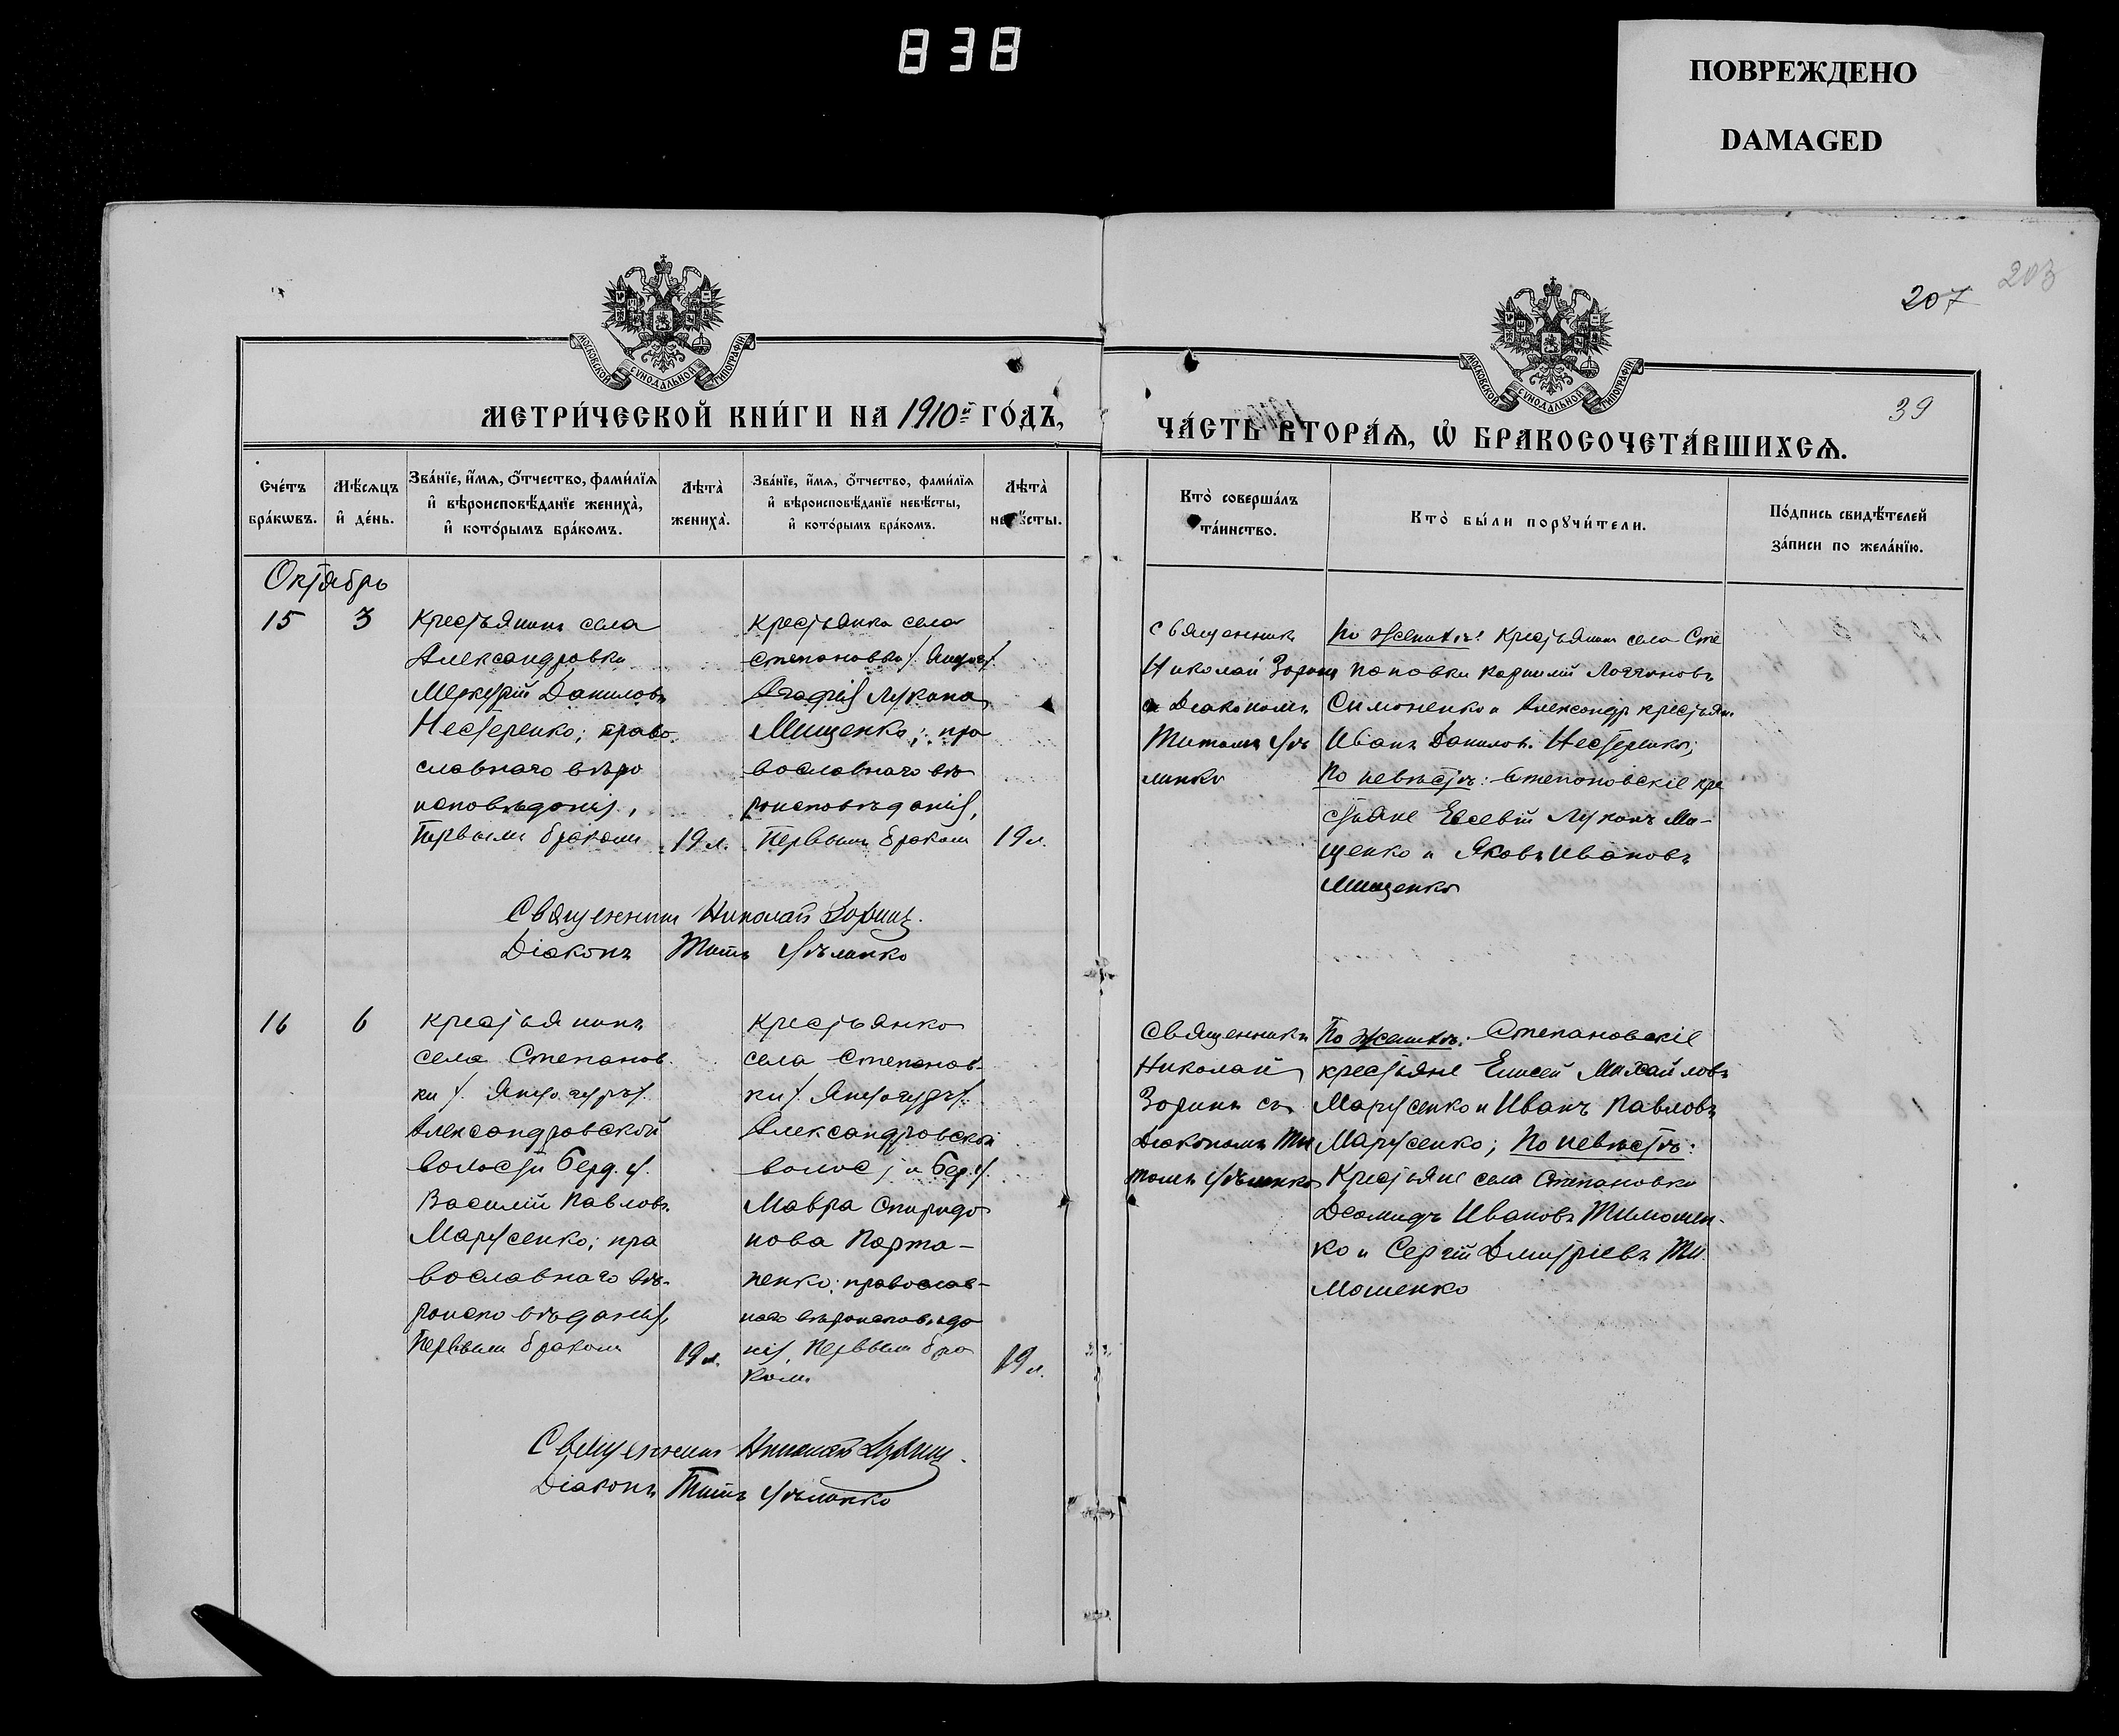 838
ПОВРЕЖДЕНО
DAMAGED
203
207
39
МОСКОВСКОЙ СѴНОДАЛЬНОЙ ТИПОГРАФІИ
МОСКОВСКОЙ СѴНОДАЛЬНОЙ ТИПОГРАФІИ
МЕТРИ́ЧЕСКОЙ КНИ́ГИ НА 1910й ГО́ДЪ,
ЧА́СТЬ ВТОРА́Ѧ, Ѽ БРАКОСОЧЕТА́ВШИХСѦ.
Сче́тъ
бра́кѡвъ.
Мѣ́сѧцъ
и҆ де́нь.
Зва́нїе, и҆́мѧ, ѻ҆́тчество, фами́лїѧ
и҆ вѣроисповѣ́данїе жениха̀,
и҆ кото́рымъ бра́комъ.
Лѣта̀
жениха̀.
Зва́нїе, и҆́мѧ, ѻ҆́тчество, фами́лїѧ
и҆ вѣроисповѣ́данїе невѣ́сты,
и҆ кото́рымъ бра́комъ.
Лѣта̀
невѣ́сты.
Кто̀ соверша́лъ
та́инство.
Кто̀ бы́ли порꙋчи́тели.
По́дпись свидѣ́телей
за́писи по жела́нїю.
Октябрь
15
3
Крестьянинъ села
Александровки
Меркурій Даниловъ
Нестеренко; право
славнаго вѣро
исповѣданія,
Первымъ бракомъ
19 л.
Крестьянка села
Степановки
Агафія Лукина
Мищенко; пра
вославнаго вѣ
роисповѣданія,
Первымъ бракомъ
19 л.
Священникъ
Николай Зоринъ
съ Діакономъ
Титомъ
По женихѣ: Крестьянинъ села Сте
пановки Корнилій
Симоненко и Александр. крестьян.
Иванъ Данилов. Нестеренко;
По невѣстѣ: Степановскіе кре
стьяне Евсевій Лукинъ Ми-
щенко и Яковъ Ивановъ
Мищенко
Священникъ Николай Зоринъ.
Діаконъ Титъ
16
6
Крестьянинъ
села Степанов
ки
Александровской
волости Берд. у.
Василій Павловъ
Марусенко; пра
вославнаго вѣ-
роисповѣданія,
Первымъ бракомъ
19 л.
Крестьянка
села Степанов-
ки
Александровской
волости Бер. у.
Мавра Спиридо
нова Парта-
ненко; православ-
наго вѣроисповѣда
нія, Первымъ бра
комъ
19 л.
Священникъ
Николай
Зоринъ съ
Діакономъ Ти
томъ
По женихѣ: Степановскіе
крестьяне Елисей Михайловъ
Марусенко и Иванъ Павловъ
Марусенко; По невѣстѣ:
Крестьяне села Степановки
Діомидъ Ивановъ Тимошен-
ко и Сергій Дмитріевъ Ти
мошенко
Священникъ Николай Зоринъ.
Діаконъ Титъ